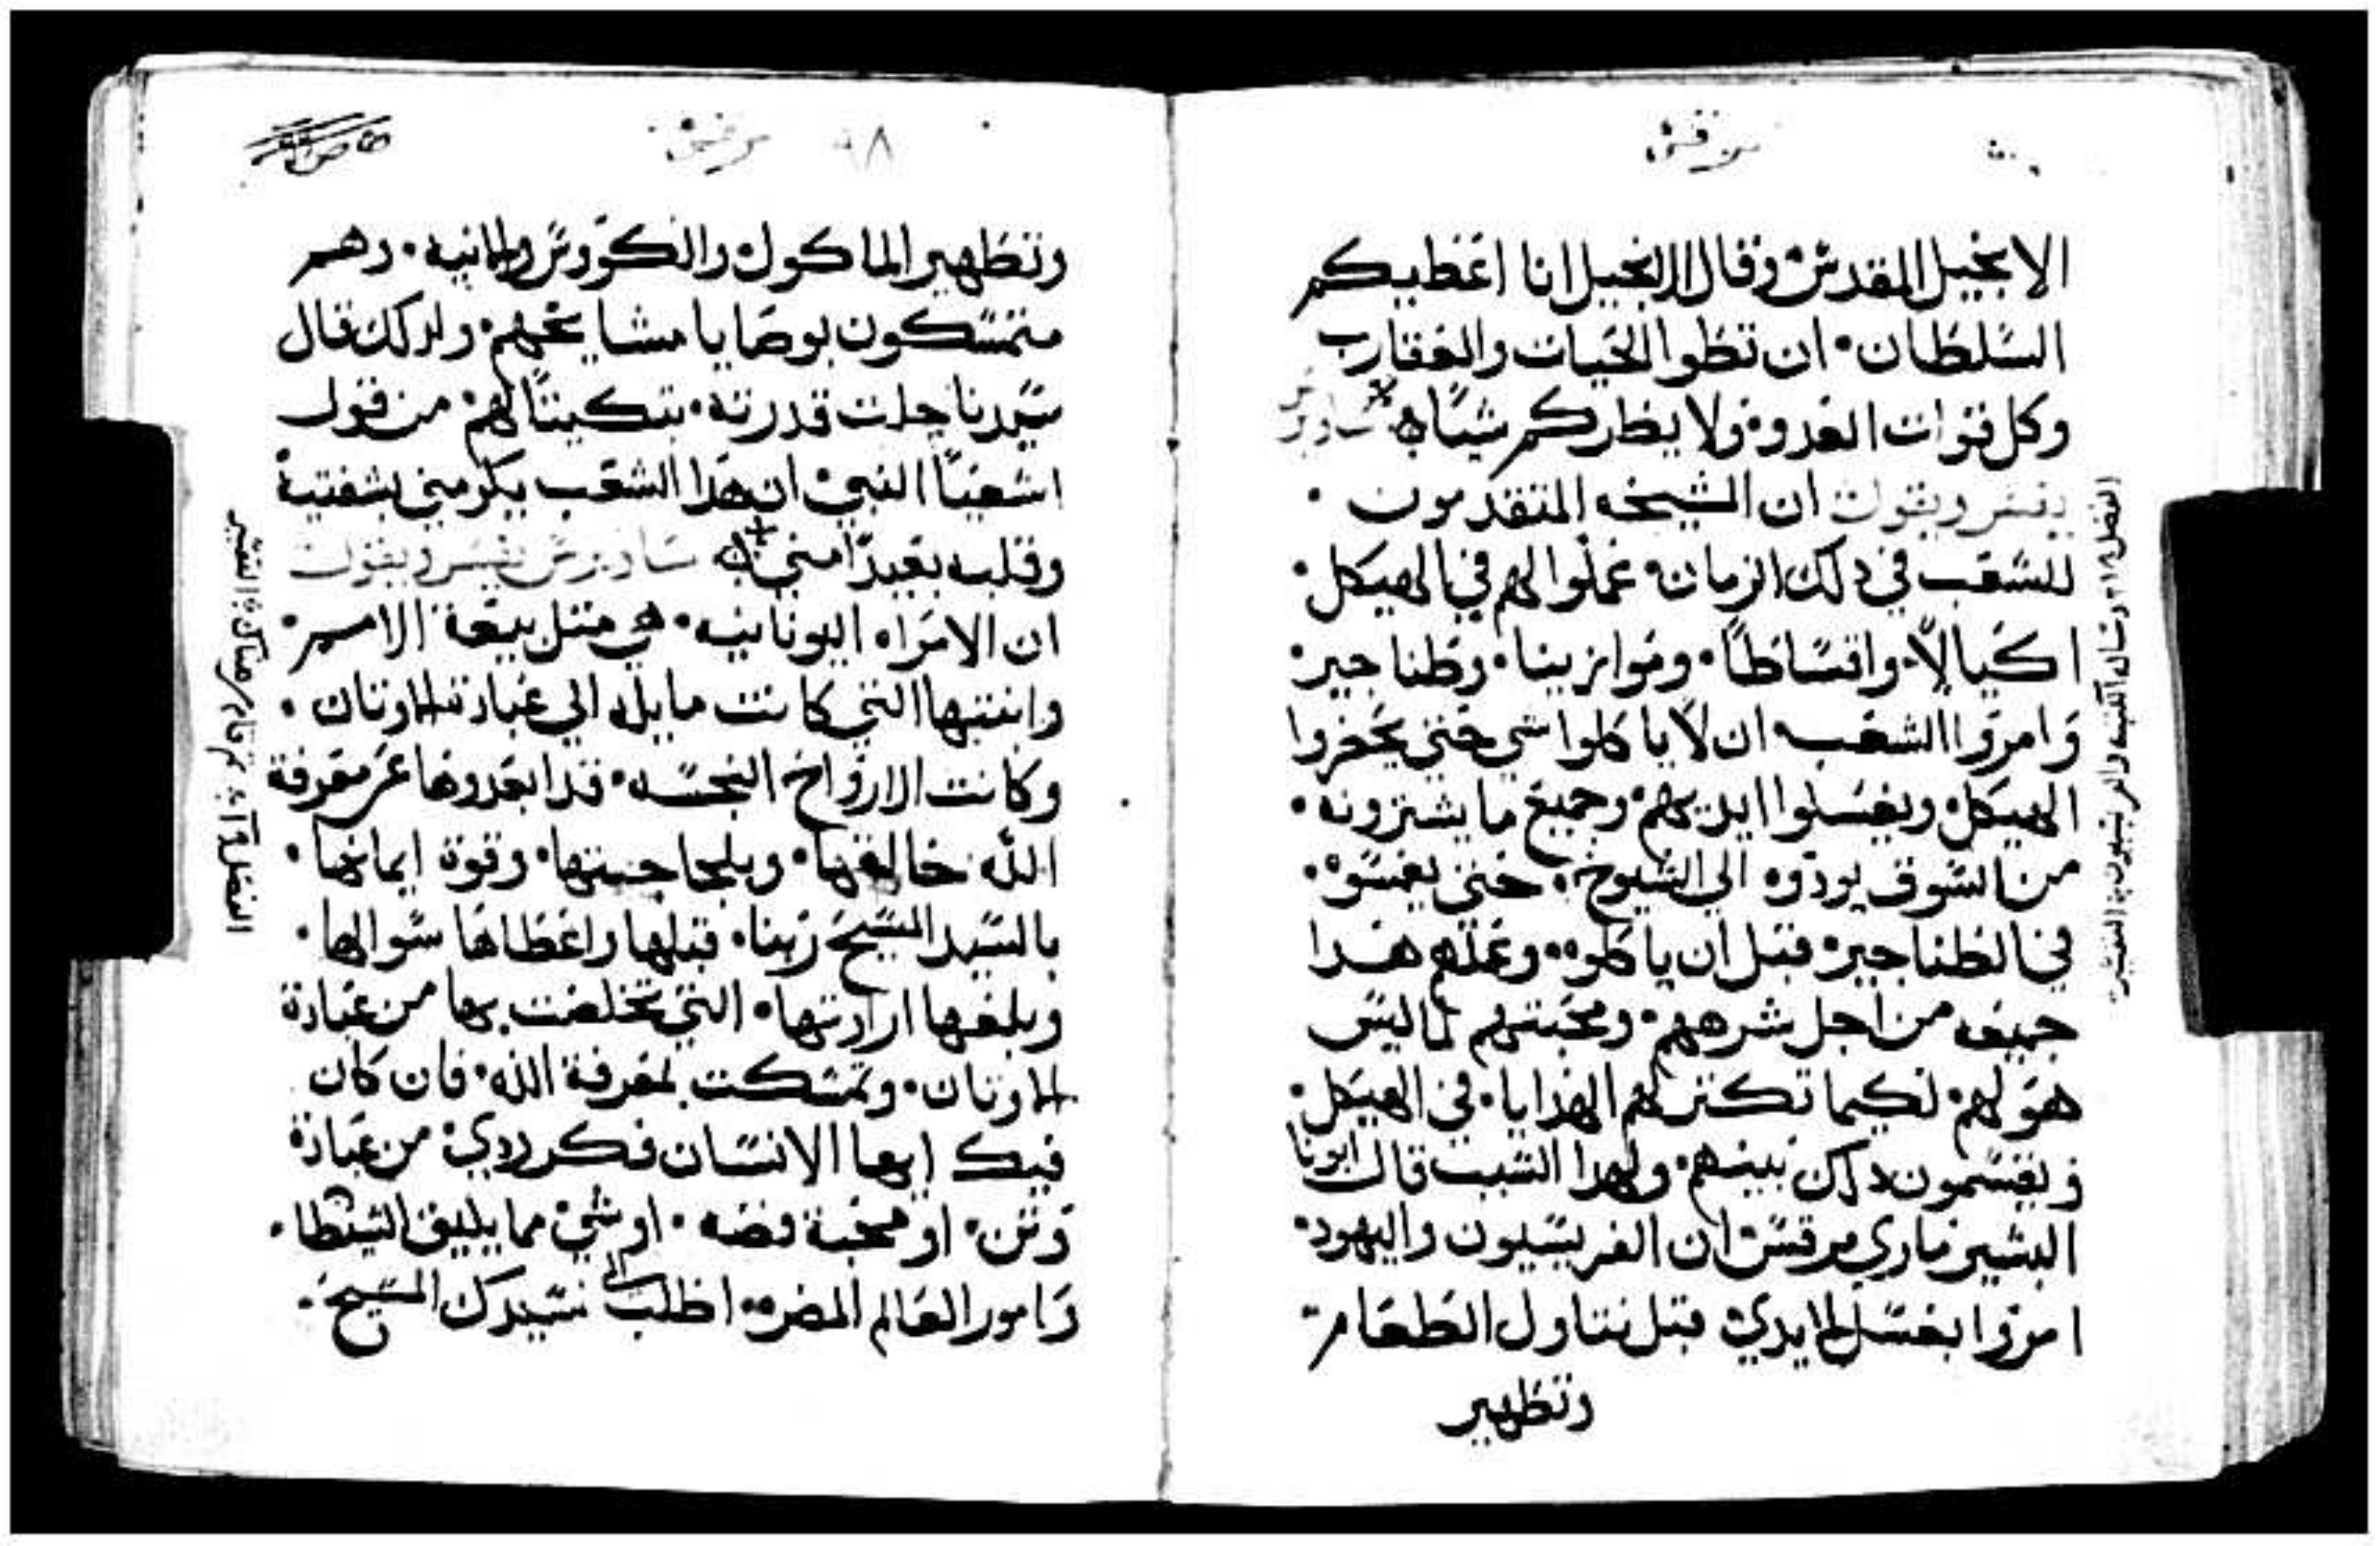 مرقس
الانجيل المقدس وقال الانجيل انا اعطيكم
السلطان ان تطوا الحيات والعقارب
وكل قوات العدو ولا يظركم شيًا ساويرس
يفسر ويقول ان الشيخه المتقدمون
للشعب في دلك الزمان عملوا لهم في الهيكل
اكيالًا واقساطًا وموازينا وطناجير
وامروا الشعب ان لا ياكلوا شي حتي يحضروا
الهيكل ويغسلوا ايديهم وجميع ما يشترونه
من السوق يودوه الي الشيوخ حتي يغسوه
في الطناجير قبل ان ياكلوه وعملهم هدا
جميعه من اجل شرههم ومحبتهم لما ليس
هو لهم لكيما تكتر لهم الهدايا في الهيكل
ويقسمون دلك بينهم ولهدا السبب قال ابونا
البشير ماري مرقس ان الفريسيون واليهود
امروا بغسل الايدي قبل تناول الطعام
وتطهير
مرقس ٩٨
وتطهير الماكول والكووس والانيه وهم
متمسكون بوصايا مشايخهم ولدلك قال
سيدنا جلت قدرته بتكيتًا لهم من قول
اشعيا النبي ان هدا الشعب يكرمني بشفتيه
وقلبه بعيدًا مني ساويرس يفسر ويقول
ان الامراه اليونانيه هي متل بيعة الامم
وابنتها التي كانت مايله الي عبادة الاوتان
وكانت الارواح النجسه قد ابعدوها عن معرفة
الله خالقها وبلجاجتها وقوة ايمانها
بالسيد المسيح ربنا قبلها واعطاها سوالها
وبلغها ارادتها التي تخلصت بها من عبادة
الاوتان وتمسكت بمعرفة الله فان كان
فيك ايها الانسان فكر ردي من عبادة
وتن او محبة فضه او شي مما يليق الشيطان
وامور العالم المضره اطلب الي سيدك المسيح